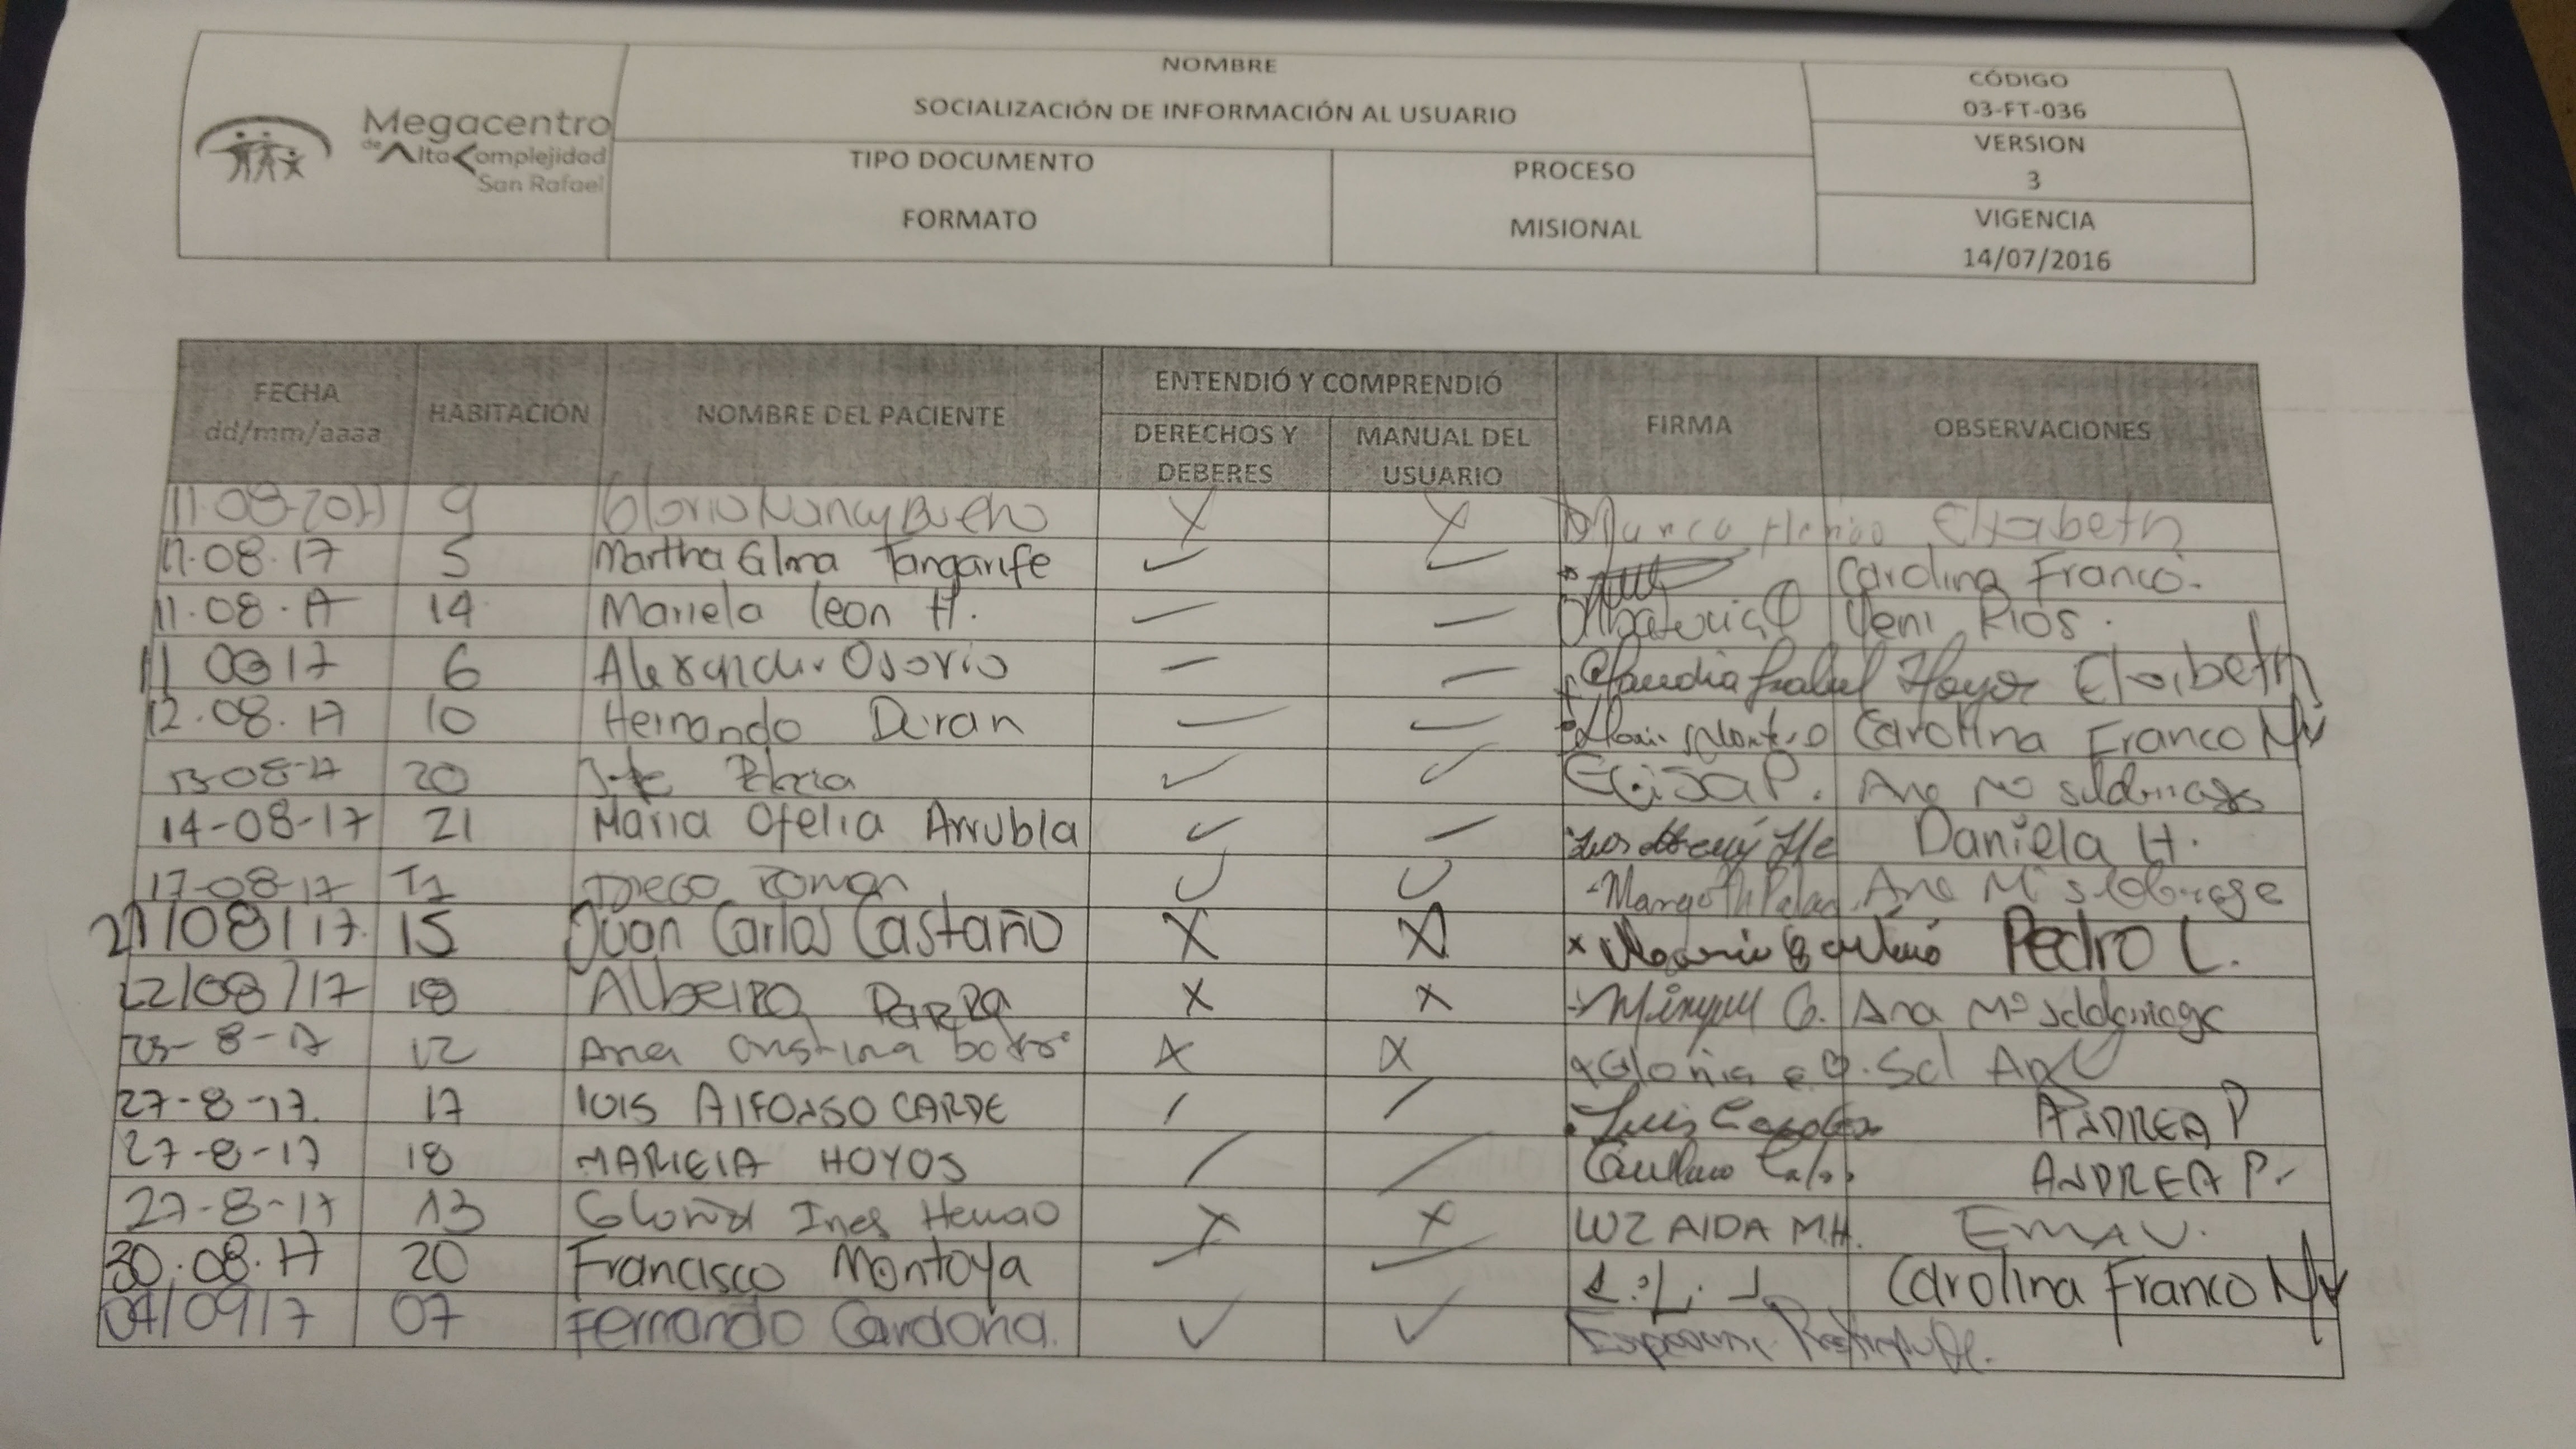 Megacentro
de Alta Complejidad
San Rafael
NOMBRE
SOCIALIZACIÓN DE INFORMACIÓN AL USUARIO
TIPO DOCUMENTO
FORMATO
PROCESO
MISIONAL
CÓDIGO
03-FT-036
VERSION
3
VIGENCIA
14/07/2016
FECHA
dd/mm/aaaa
HABITACIÓN
NOMBRE DEL PACIENTE
ENTENDIÓ Y COMPRENDIÓ
DERECHOS Y
DEBERES
MANUAL DEL
USUARIO
FIRMA
OBSERVACIONES
11-08-2017 9 Gloria Nancy Bueno X X Elizabeth
11.08.17 5 Martha Elma Tangarife Carolina Franco.
11.08.17 14 Mariela leon H. Yeni Rios.
11 08 17 6 Alexander Osorio Claudia Isabel Hoyos Elizabeth
12.08.17 10 Hernando Duran Carolina Franco
13-08-17 20 Ana Mª
14-08-17 21 Maria Ofelia Arrubla Daniela H.
17-08-17 Diego roman Margoth Ana Mª
21/08/17 15 Juan Carlos Castaño X X Pedro L.
22/08/17 18 Albeiro PARRA X X Ana Mª
8-17 12 Ana cristina X X Gloria
27-8-17 17 lUIS AlFONSO CARDE Luis ANDREA P
27-8-17 18 MARIElA HOYOS ANDREA P.
27-8-17 13 Gloria Ines Henao X X LUZ AIDA M.H. EMA V.
30.08.17 20 Francisco Montoya Carolina Franco
04/09/17 07 Fernando Cardona.